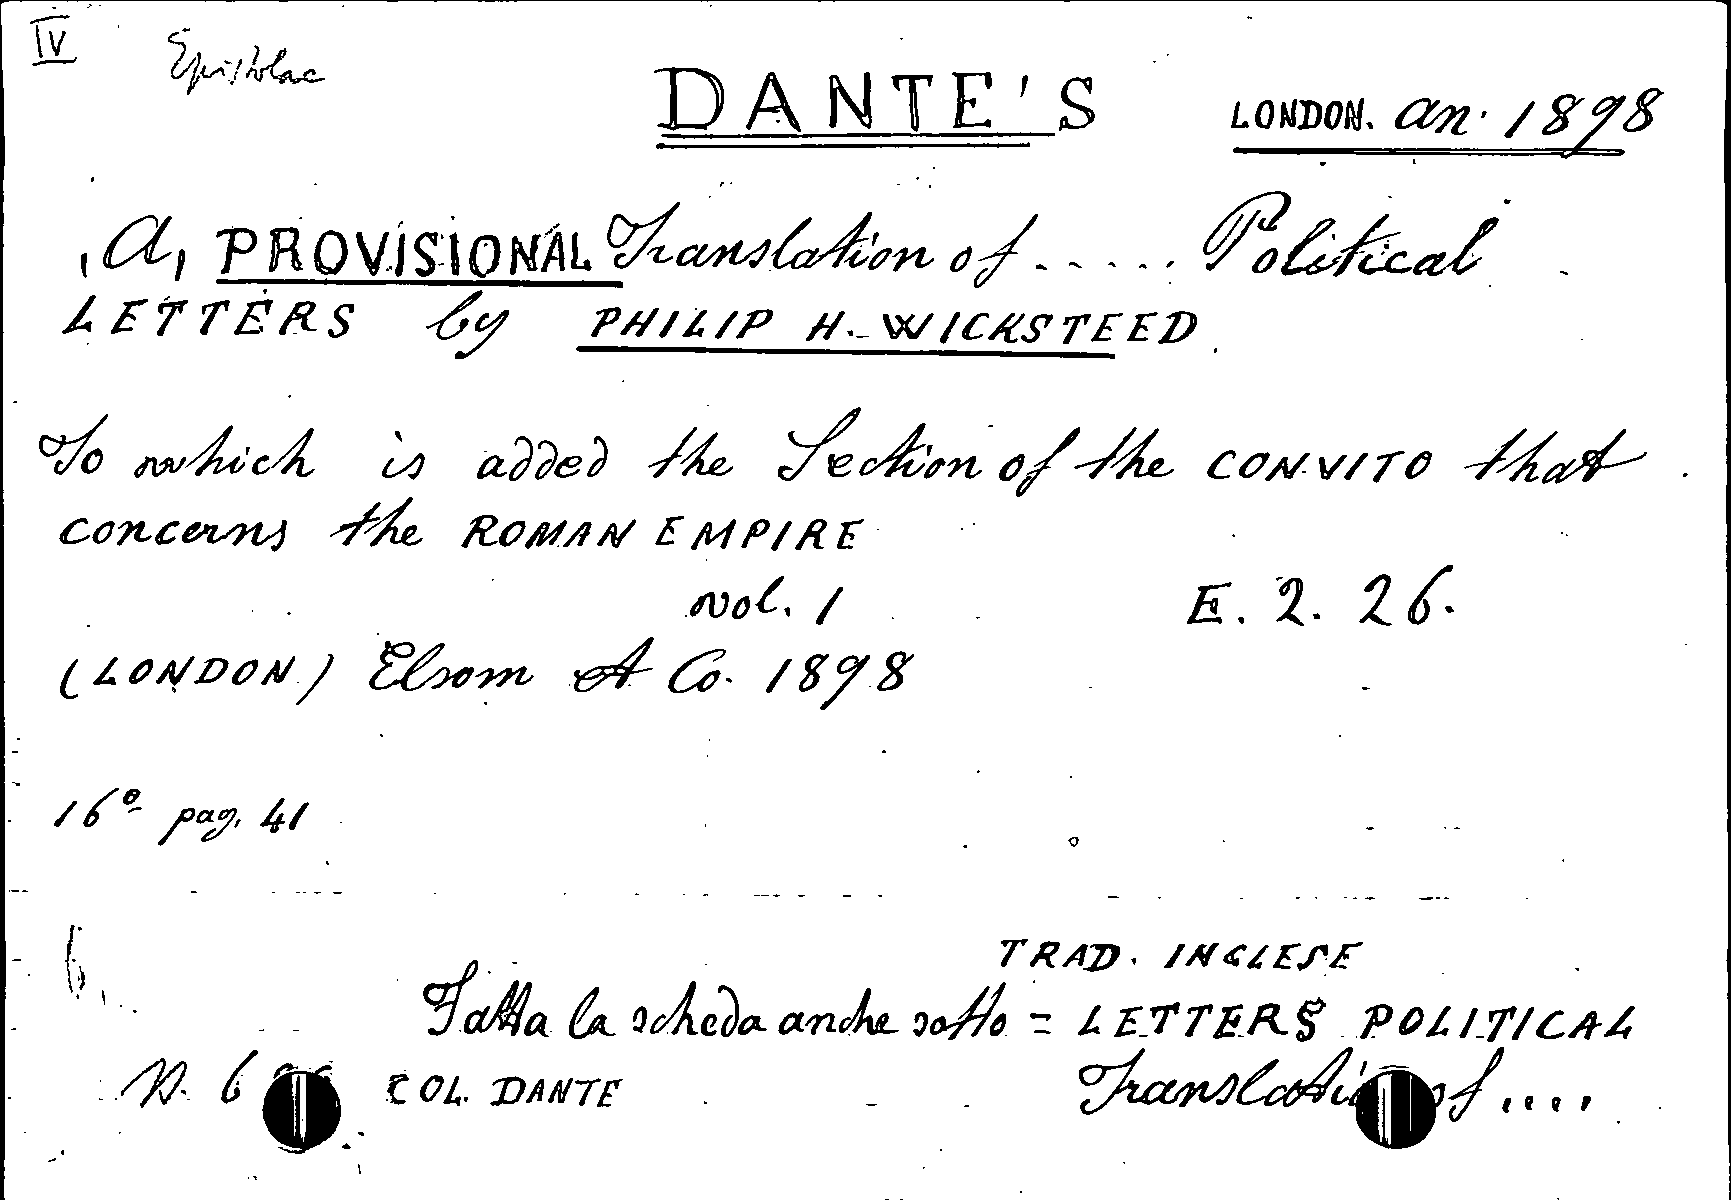 IV Epistolae
DANTE'S LONDON. an. 1898
(A) PROVISIONAL Translation of ..... Political
LETTERS by PHILIP H. WICKSTEED
To which is added the Section of the CONVITO that
concerns the ROMAN EMPIRE
vol. 1 E. 2. 26.
(LONDON) Elsom et Co. 1898
16º pag. 41
TRAD. INGLESE
Fatta la scheda anche sotto = LETTERS POLITICAL
N. 6 COL. DANTE Translation of ....